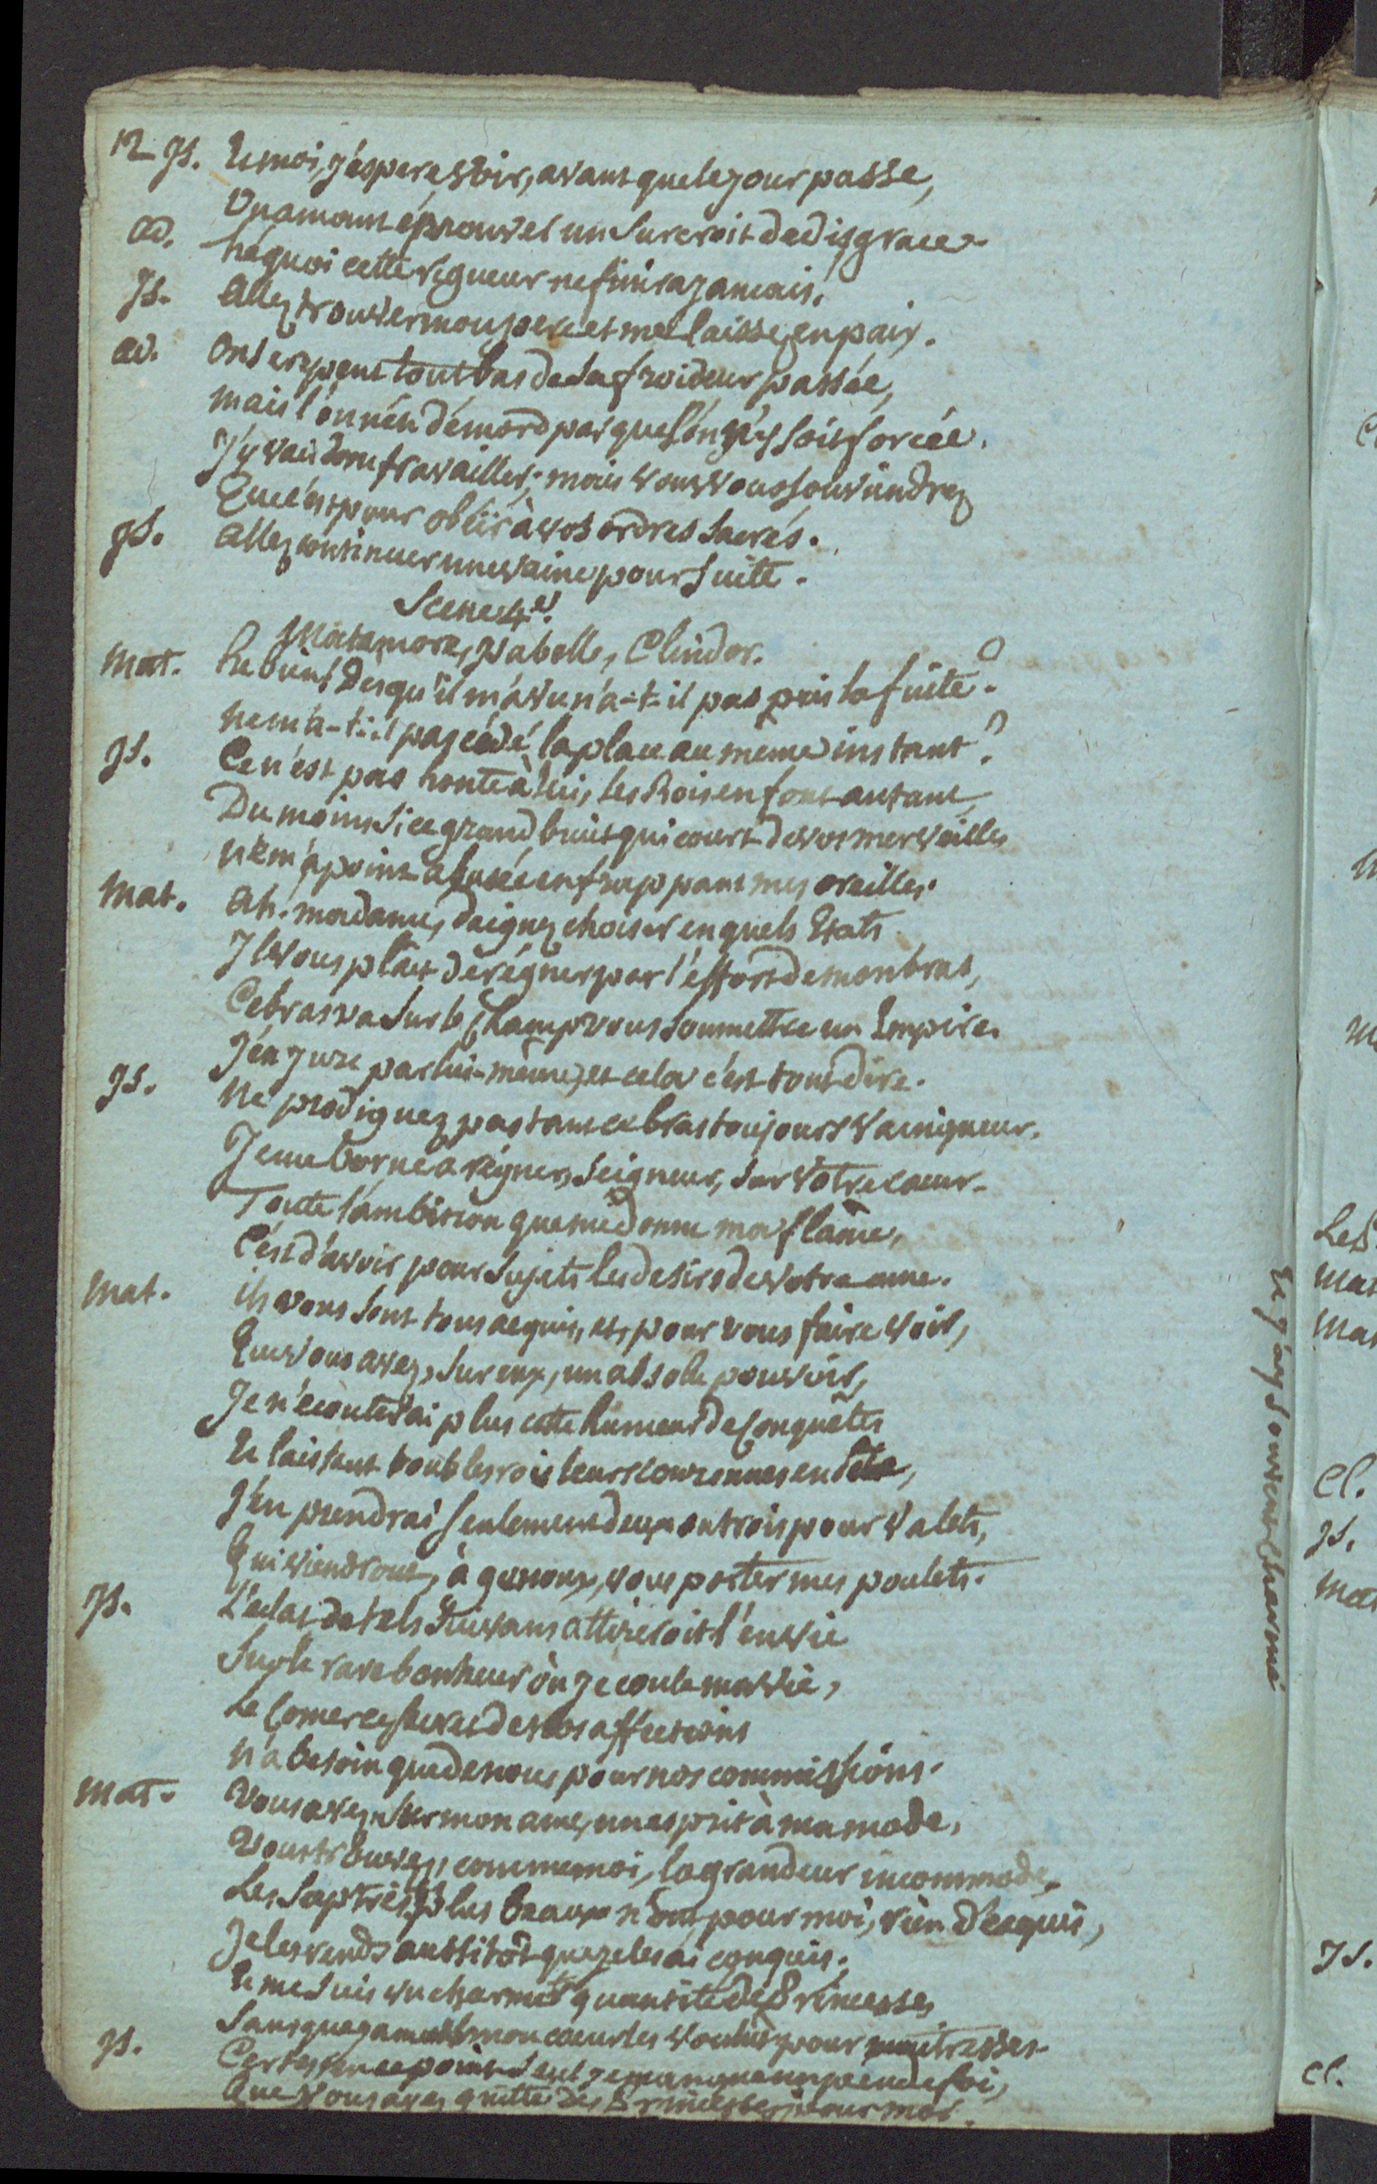 12 Js. Et moi, j'éspere voir, avant que le jour passe,
Un amant éprouver un surcroit de disgrace.
ad. hé quoi cette rigueur ne finira jamais.
Js. Allez trouver mon pere et me laissez en paix.
ad. On se repent tout bas de sa froideur passée,
mais l'on n'en démord pas que l'on n'y soit forcée.
J'y vais donc travailler; mais vous vous souviendrez
Que c'est pour obéir à vos ordres sacrés.
Js. allez continuer une vaine poursuite.
Scene 4e.
Matamore, Jsabelle, Clindor.
Mat. he bien! Des qu'il m'a vu n'a-t-il pas pris la fuite?
ne m'a-t-il pas cédé la place au même instant?
Js. Ce n'est pas honte à lui, les Rois en font autant,
Du moins si ce grand bruit qui court de vos merveilles
n'em'a point abusée en frappant mes oreilles.
Mat. ah. madame, daignez choisir en quels Etats
Il vous plait de régner par l'effort de mon bras,
Ce bras va sur le champ vous soumettre un Empire.
J'en jure par lui-même, et cela c'est tout dire.
Js. Ne prodiguez pas tant ce bras toujours vainqueur.
Je me borne à régner, Seigneur, sur votre coeur.
Toute l'ambition que me donne ma flâme,
C'est d'avoir pour sujets les desirs de votre ame.
Mat. ils vous sont tous acquis, et, pour vous faire voir,
Que vous avez, sur eux, un absolu pouvoir,
Je n'écouterai plus cette humeur de Conquêtes
Et laissant tous les rois leurs couronnes en tête,
J'en prendrai seulement deux ou trois pour valets,
Qui viendront, à genoux, vous porter mes poulets.
Js. L'éclat de tels suivans attireroit l'envie
Sur le rare bonheur où je coule ma vie,
Le Comerce secret de vos affections
N'a besoin que de nous pour nos commissions.
Mat. Vous avez, sur mon ame, un esprit à ma mode,
Vous trouvez, comme moi, la grandeur incommode,
Les sceptres plus beaux n'ont pour moi, rien d'exquis,
Je les rends aussitôt que je les ai conquis.
Et me suis vu charmer quantité de Princesses
Sans que jamais mon coeur les voulut pour maitresses.
Js. Certes en ce point seul je manque un peu de foi,
Que vous ayez quitté des Princesses pour moi.
Et j'ay souvent charmé
Les
mat
Mat
Cl.
Js.
Mat
Js.
Cl.